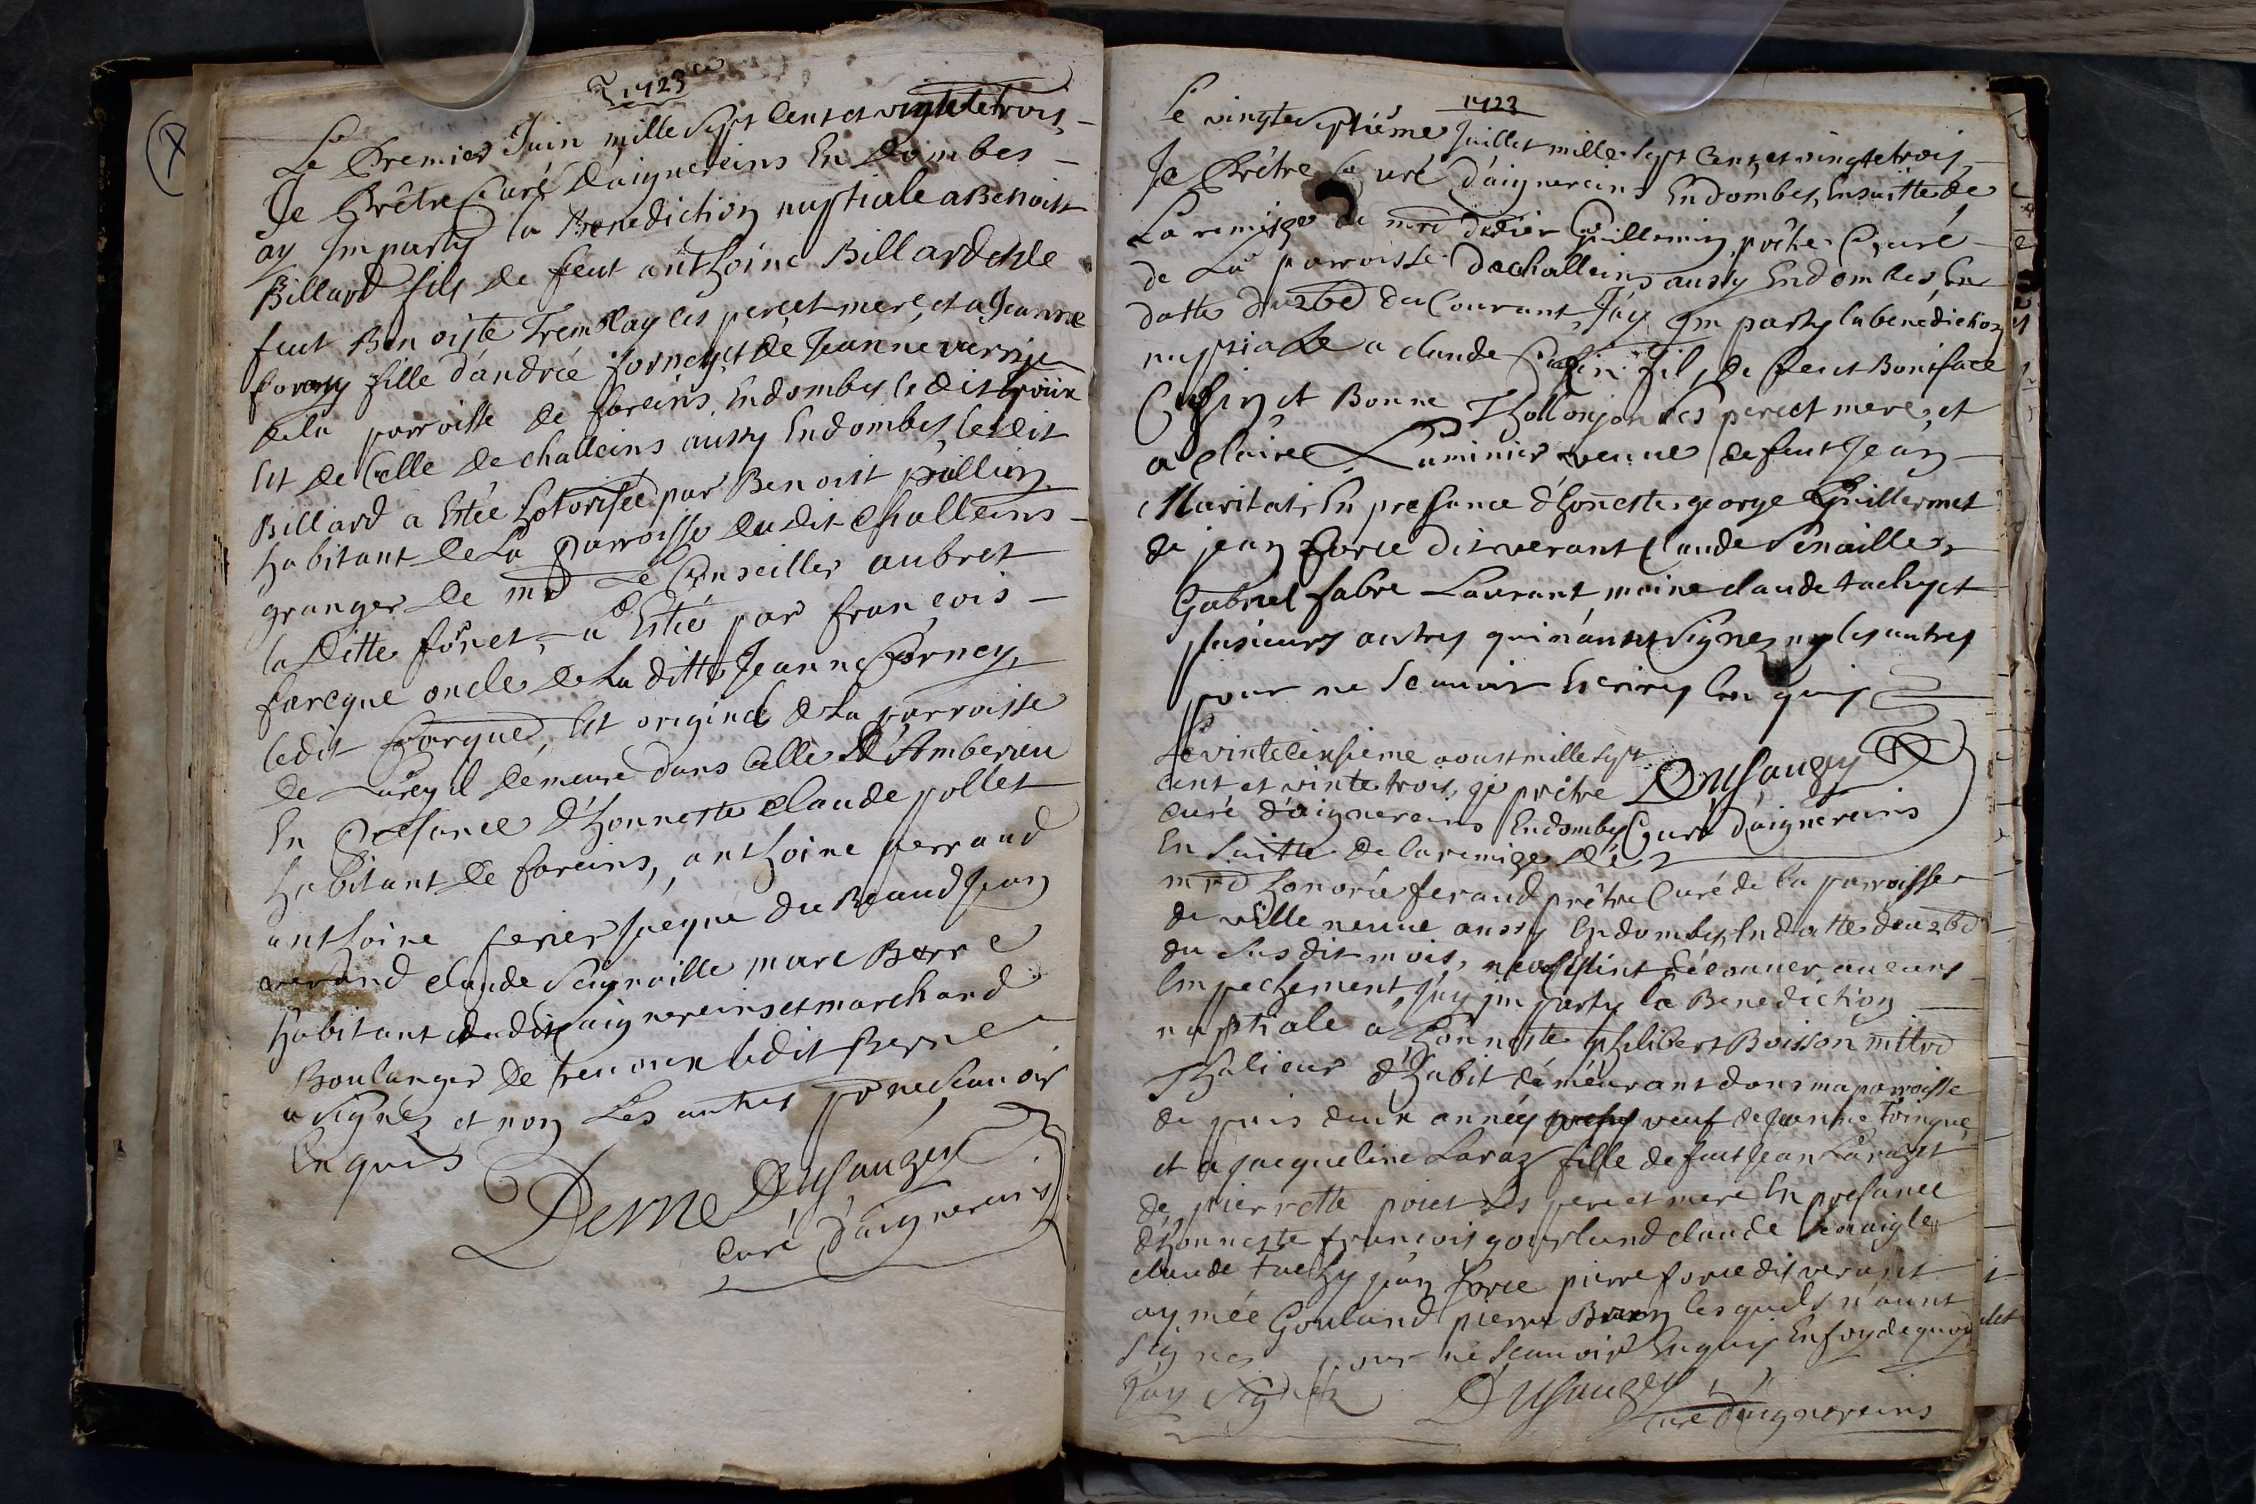 1723
Le Premier Juin mille Sept Cent et vingtetrois,
Je Prêtre Curé Daignereins En Dombes
ay Imparty la Benediction nuptiale a Benoist
Billard fils de feut anthoine Billard et de
feut Benoiste Tremblay ses pere et mere, et a Jeanne
fornay fille d'andrée fornay, et de Jeanne
de la parroisse de fareins, En dombes le dit
Est de Celle de challeins aussy En dombes, le dit
Billard a Estée hotorisée par Benoist
habitant de La Parroisse du dit Challeins
granger de mr Le Conseiller aubret
la Ditte fornet, a Estée par françois
farcque oncle de La ditte Jeanne forney,
le dit farque, Est originel de La parroisse
de il demeure dans Celle D'Amberieu
En Presance d'honneste Claude pollet
habitant de fareins, anthoine perrand
anthoine ferier Jacque du Jean
verand Claude Seignaille marc Berne
habitant du dit aignereins et marchand
Boulanger de trevoux le dit Berne
a Signéz et non Les autres pr ne scauoir
En quis
Berne Dusauzey
Curé d'aignereins
1723
Le vingteseptiéme Juillet mille sept Cent, et vingtetrois,
Je Prêtre Curé d'aignereins En dombes, En suitte de
La remise de mre didier Guillemin, prêtre Curé
de La parroisse de challeins aussy En dombes, En
datte du 26e du Courant, J'ay Imparty la benediction
nuptiale a claude Cussin fils, de feut Boniface
Cussin, et Bonne Thollonjon ses pere et mere, et
a claire Luminier veuue de feut Jean
Maritat, En presance d'honneste george Guillermet
de jean forie dit verant Claude Senaille,
Gabriel fabre Laurant moine claude tachy, et
plusieurs autres qui n'aunt Signez ny les autres
pour ne scauoir Escrires En quis
Dusauzey
Curé d'aignereins
Le vintecinsieme aoust mille sept
cent et vintetrois, je prêtre
curé d'aignereins En dombes
En Suitte de la remise de
mre honorée feraud prêtre Curé de la parroisse
de villeneuue aussy En dombes, En datte du 26e
du Susdit mois, nes'Estint découuer aucuns
Empechement, J'ay imparty la Benediction
nuptiale a honneste philibert Boisson mttre
Thalieur d'habit deméurant dans ma parroisse
depuis deux annéy veuf de Jeanne
et a Jacqueline Laraz fille de feut Jean Laraz et
de pierrette poiet ses pere et mere En presance
d'honneste françois gourland claude Senaigle
claude tachy jean forie pierre forie dit verand et
aymée Gouland pierre les quels n'aunt
Signer pour ne scauoir Enquis En foy de quoy
J'ay Signéz Dusauzey
Curé d'aignereins